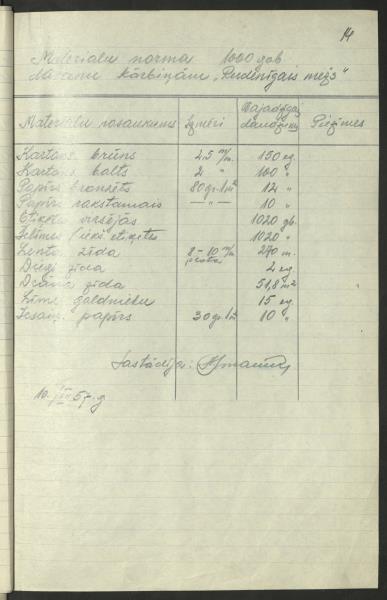 14
Materialu norma 1000 gab
dāvanu kārbiņām "Rudenīgais mežs"
Materiālu nosaukums Izmēri Vajadzīgais daudzums Piezīmes
Kartons brūns 2,5 m/m 150 kg
Kartons balts 2 " 100 "
Papīrs bronzēts 80 gr. 1m² 12 "
Papīrs rakstāmais — " — 10 "
Etiķete virsējās 1020 gb.
Iekšējās etiķetes 1020 "
Lenta zīda 8-10 m/m 270 m.
Diegi zīda 2 kg
Drāna zīda 51,8 m²
Līme galdnieku 15 kg
Iesaiņ. papīrs 30 gr. 1m² 10 "
Sastādīja:
10. VII 57. g